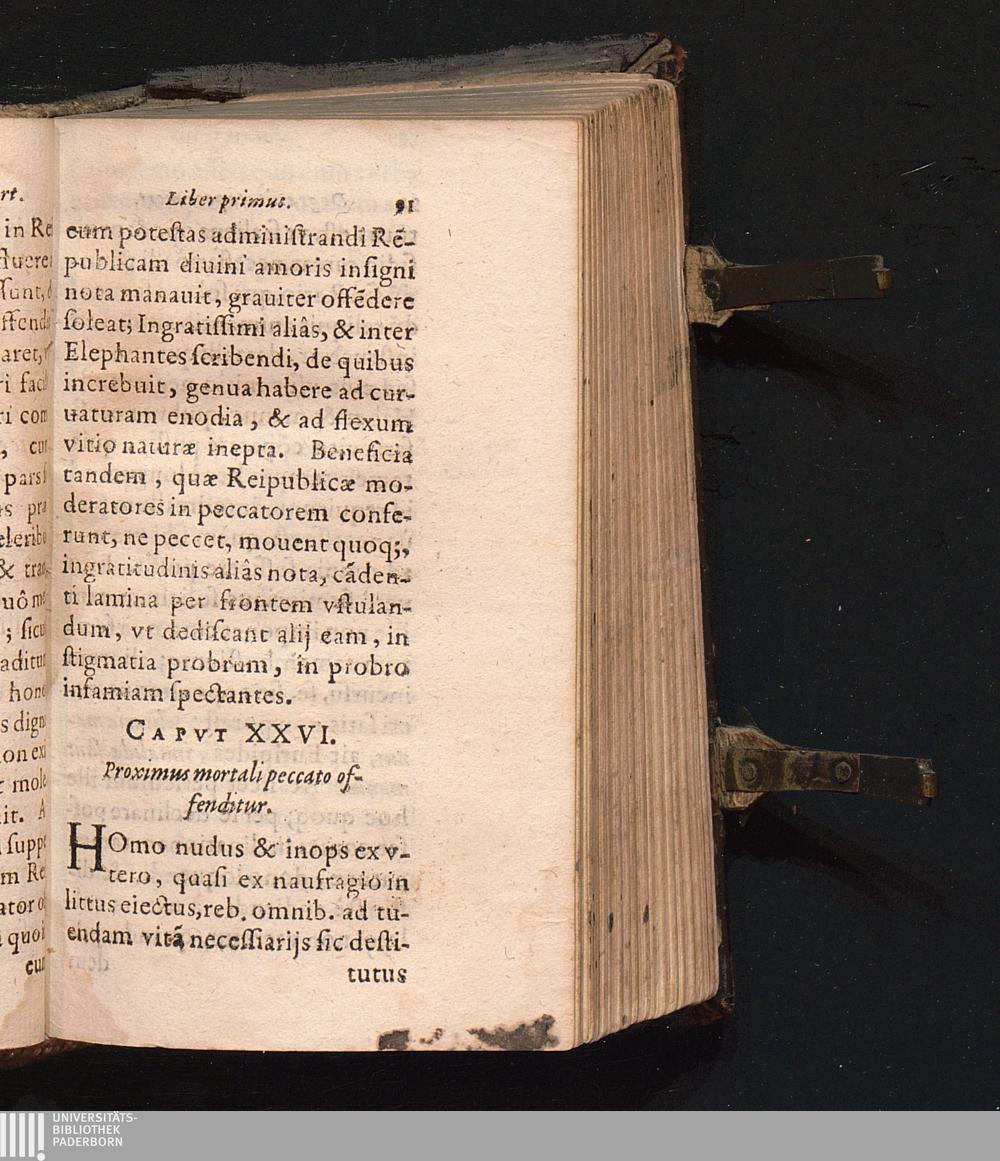 rt.
in Re
ſſunt,
ffend
aret,
ri faci
ri com
, cur
pars
s pra
eleribu
& tran
uô me
; ſicu
aditur
hono
s dign
on ex
t mole
it. A
ſuppe
m Re
ator
quoi
cum
Liber primus. 91
eum poteſtas adminiſtrandi Rē-
publicam diuini amoris inſigni
nota manauit, grauiter offēdere
ſoleat; Ingratiſſimi aliâs, & inter
Elephantes ſcribendi, de quibus
increbuit, genua habere ad cur-
uaturam enodia, & ad flexum
vitio naturæ inepta. Beneficia
tandem, quæ Reipublicæ mo-
deratores in peccatorem confe-
runt, ne peccet, mouent quoq;,
ingratitudinis aliâs nota, cāden-
ti lamina per frontem vſtulan-
dum, vt dediſcant alij eam, in
ſtigmatia probrum, in probro
infamiam ſpectantes.
CAPVT XXVI.
Proximus mortali peccato of-
fenditur.
HOmo nudus & inops ex v-
tero, quaſi ex naufragio in
littus eiectus, reb. omnib. ad tu-
endam vitā neceſſiarijs ſic deſti-
tutus
UNIVERSITÄTS-
BIBLIOTHEK
PADERBORN